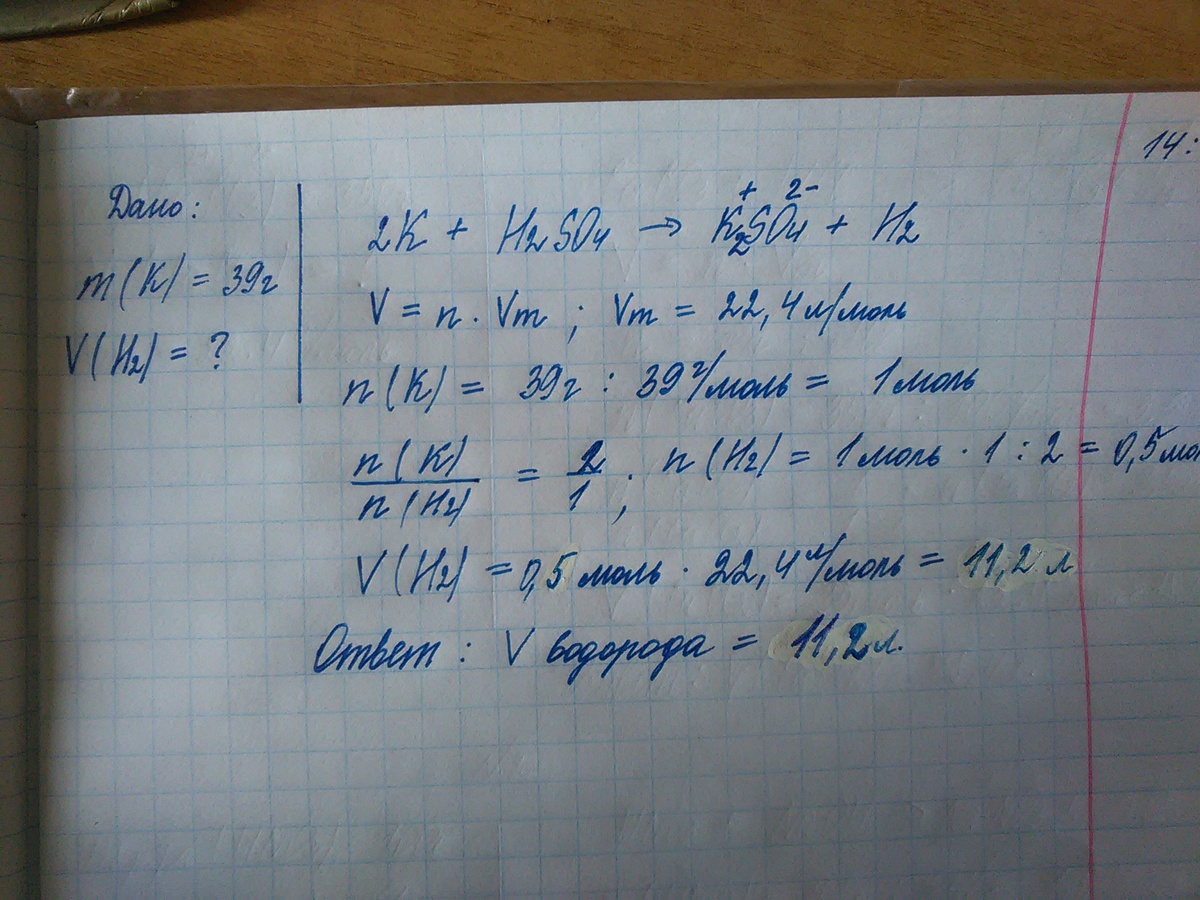 14:
Дано:
m(K) = 39г
V(H₂) = ?
2K + H₂SO₄ → K₂⁺SO₄²⁻ + H₂
V = n · Vm ; Vm = 22,4 л/моль
n(K) = 39г : 39 г/моль = 1 моль
n(K)/n(H₂) = 2/1 ; n(H₂) = 1 моль · 1 : 2 = 0,5 мол
V(H₂) = 0,5 моль · 22,4 л/моль = 11,2 л
Ответ : V водорода = 11,2 л.